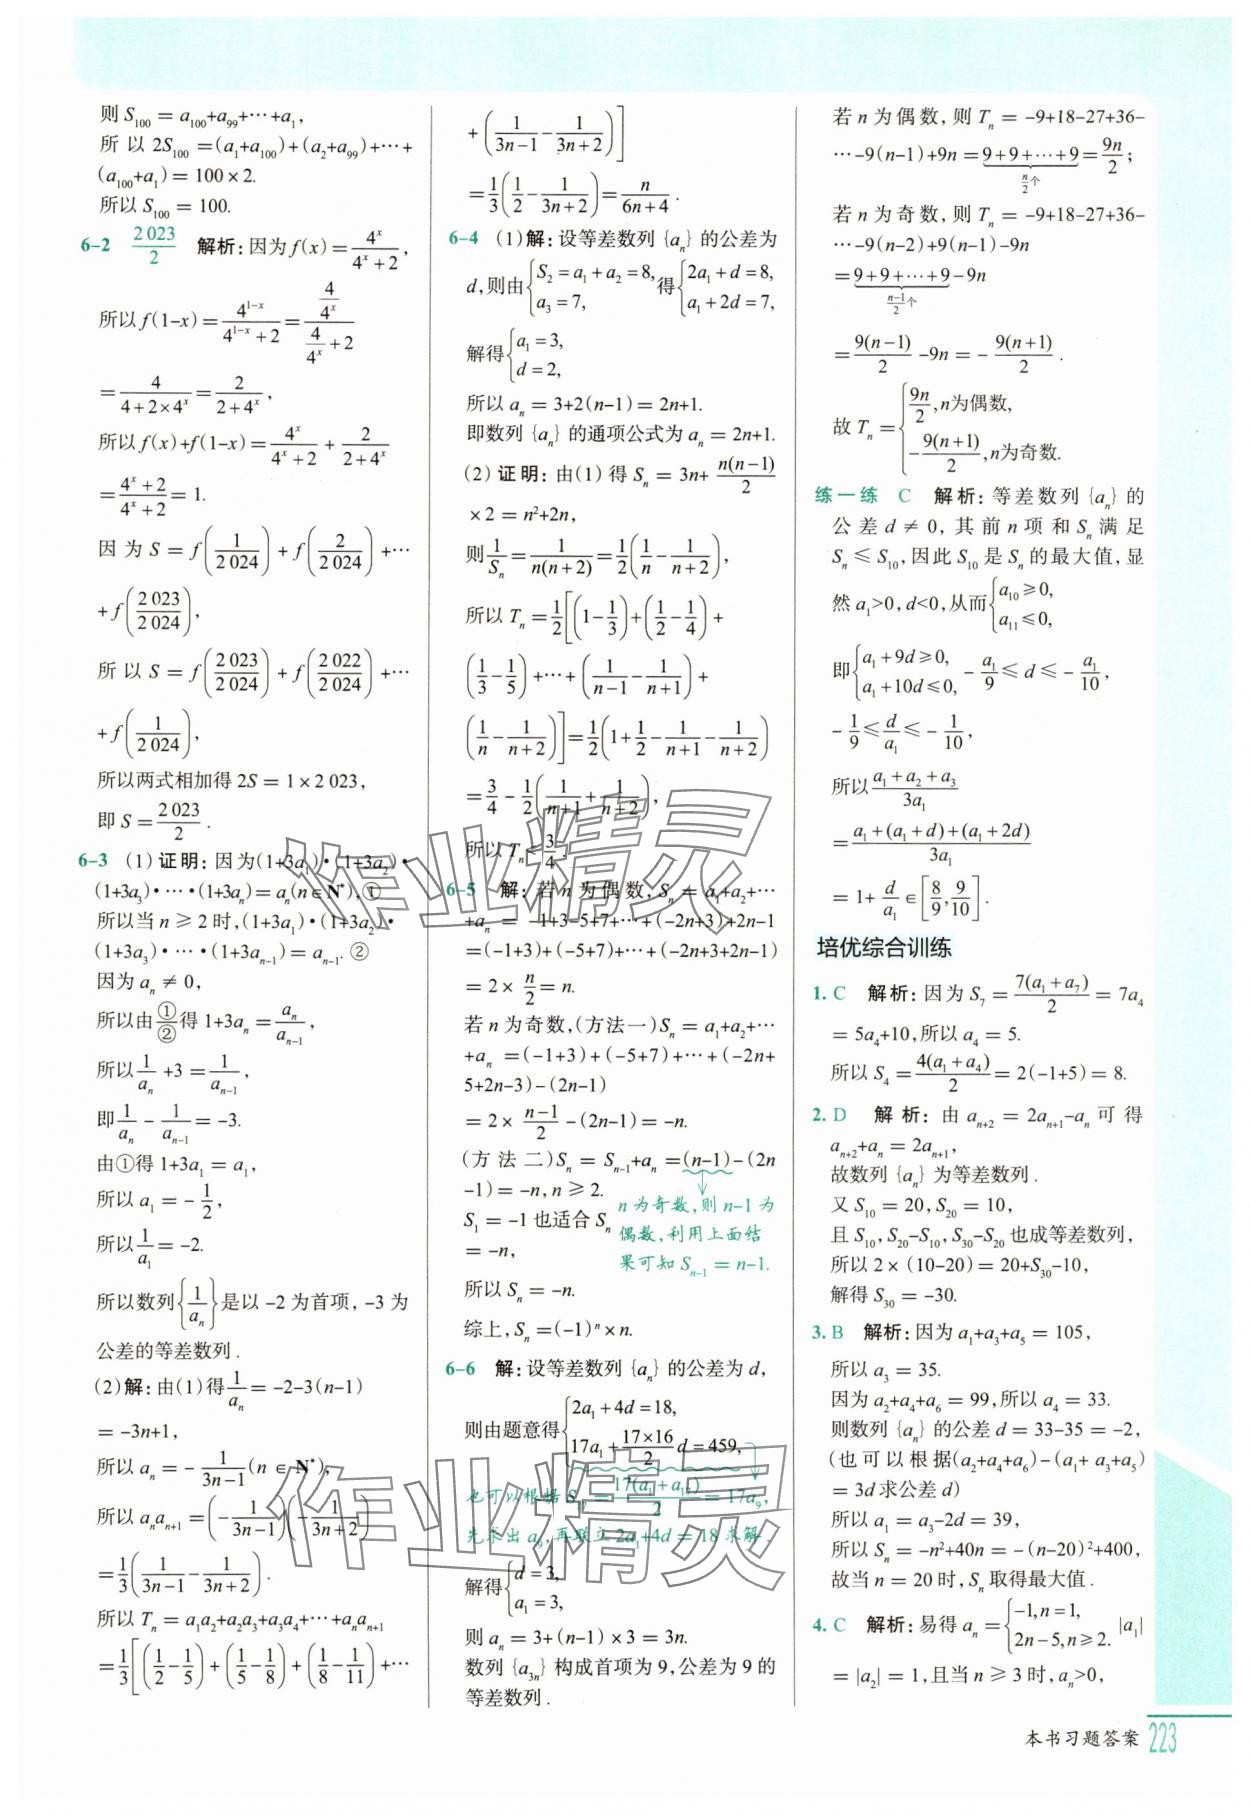 则 S₁₀₀ = a₁₀₀+a₉₉+⋯+a₁,
所以 2S₁₀₀ =(a₁+a₁₀₀)+(a₂+a₉₉)+⋯+
(a₁₀₀+a₁)= 100×2.
所以 S₁₀₀ = 100.
6-2 2 023/2 解析:因为 f(x)= 4ˣ/(4ˣ+2),
所以 f(1-x)= 4¹⁻ˣ/(4¹⁻ˣ+2) = (4/4ˣ)/(4/4ˣ+2)
= 4/(4+2×4ˣ) = 2/(2+4ˣ),
所以 f(x)+f(1-x)= 4ˣ/(4ˣ+2) + 2/(2+4ˣ)
= (4ˣ+2)/(4ˣ+2) = 1.
因为 S = f(1/2 024) + f(2/2 024) +⋯
+f(2 023/2 024),
所以 S = f(2 023/2 024) + f(2 022/2 024) +⋯
+f(1/2 024),
所以两式相加得 2S = 1×2 023,
即 S = 2 023/2.
6-3 (1)证明:因为(1+3a₁)·(1+3a₂)·
(1+3a₃)·⋯·(1+3aₙ)= aₙ(n∈N*),①
所以当 n≥2 时,(1+3a₁)·(1+3a₂)·
(1+3a₃)·⋯·(1+3aₙ₋₁)= aₙ₋₁. ②
因为 aₙ ≠ 0,
所以由①/②得 1+3aₙ = aₙ/aₙ₋₁,
所以 1/aₙ +3 = 1/aₙ₋₁,
即 1/aₙ - 1/aₙ₋₁ = -3.
由①得 1+3a₁ = a₁,
所以 a₁ = -1/2,
所以 1/a₁ = -2.
所以数列{1/aₙ}是以 -2 为首项, -3 为
公差的等差数列.
(2)解:由(1)得 1/aₙ = -2-3(n-1)
= -3n+1,
所以 aₙ = - 1/(3n-1) (n∈N*),
所以 aₙaₙ₊₁ = (-1/(3n-1))(-1/(3n+2))
= 1/3(1/(3n-1) - 1/(3n+2)).
所以 Tₙ = a₁a₂+a₂a₃+a₃a₄+⋯+aₙaₙ₊₁
= 1/3[(1/2 - 1/5) + (1/5 - 1/8) + (1/8 - 1/11) +⋯
+ (1/(3n-1) - 1/(3n+2))]
= 1/3(1/2 - 1/(3n+2)) = n/(6n+4).
6-4 (1)解:设等差数列{aₙ}的公差为
d,则由{S₂ = a₁+a₂ = 8, a₃ = 7, 得{2a₁+d = 8, a₁+2d = 7,
解得{a₁ = 3, d = 2,
所以 aₙ = 3+2(n-1)= 2n+1.
即数列{aₙ}的通项公式为 aₙ = 2n+1.
(2)证明:由(1)得 Sₙ = 3n+ n(n-1)/2
×2 = n²+2n,
则 1/Sₙ = 1/(n(n+2)) = 1/2(1/n - 1/(n+2)),
所以 Tₙ = 1/2[(1-1/3)+(1/2-1/4)+
(1/3-1/5)+⋯+(1/(n-1) - 1/(n+1))+
(1/n - 1/(n+2))] = 1/2(1+1/2 - 1/(n+1) - 1/(n+2))
= 3/4 - 1/2(1/(n+1) + 1/(n+2)),
所以 Tₙ < 3/4.
6-5 解:若 n 为偶数, Sₙ = a₁+a₂+⋯
+aₙ = -1+3-5+7+⋯+(-2n+3)+2n-1
=(-1+3)+(-5+7)+⋯+(-2n+3+2n-1)
= 2× n/2 = n.
若 n 为奇数,(方法一)Sₙ = a₁+a₂+⋯
+aₙ =(-1+3)+(-5+7)+⋯+(-2n+
5+2n-3)-(2n-1)
= 2× (n-1)/2 -(2n-1)= -n.
(方法二)Sₙ = Sₙ₋₁+aₙ =(n-1)-(2n
-1)= -n, n≥2.
S₁ = -1 也适合 Sₙ
= -n,
n 为奇数,则 n-1 为
偶数,利用上面结
果可知 Sₙ₋₁ = n-1.
所以 Sₙ = -n.
综上, Sₙ =(-1)ⁿ×n.
6-6 解:设等差数列{aₙ}的公差为 d,
则由题意得{2a₁+4d = 18, 17a₁+ 17×16/2 d = 459,
也可以根据 S₁₇ = 17(a₁+a₁₇)/2 = 17a₉,
先求出 a₉,再联立 2a₁+4d = 18 求解.
解得{d = 3, a₁ = 3,
则 aₙ = 3+(n-1)×3 = 3n.
数列{a₃ₙ}构成首项为 9,公差为 9 的
等差数列.
若 n 为偶数,则 Tₙ = -9+18-27+36-
⋯-9(n-1)+9n = 9+9+⋯+9 (n/2个) = 9n/2;
若 n 为奇数,则 Tₙ = -9+18-27+36-
⋯-9(n-2)+9(n-1)-9n
= 9+9+⋯+9 ((n-1)/2个) -9n
= 9(n-1)/2 -9n = - 9(n+1)/2.
故 Tₙ = {9n/2, n为偶数, -9(n+1)/2, n为奇数.
练一练 C 解析:等差数列{aₙ}的
公差 d≠0,其前 n 项和 Sₙ 满足
Sₙ≤S₁₀,因此 S₁₀ 是 Sₙ 的最大值,显
然 a₁>0, d<0,从而{a₁₀≥0, a₁₁≤0,
即{a₁+9d≥0, a₁+10d≤0, -a₁/9 ≤ d ≤ -a₁/10,
-1/9 ≤ d/a₁ ≤ -1/10,
所以 (a₁+a₂+a₃)/3a₁
= (a₁+(a₁+d)+(a₁+2d))/3a₁
= 1+ d/a₁ ∈[8/9, 9/10].
培优综合训练
1. C 解析:因为 S₇ = 7(a₁+a₇)/2 = 7a₄
= 5a₄+10,所以 a₄ = 5.
所以 S₄ = 4(a₁+a₄)/2 = 2(-1+5)= 8.
2. D 解析:由 aₙ₊₂ = 2aₙ₊₁-aₙ 可得
aₙ₊₂+aₙ = 2aₙ₊₁,
故数列{aₙ}为等差数列.
又 S₁₀ = 20, S₂₀ = 10,
且 S₁₀, S₂₀-S₁₀, S₃₀-S₂₀ 也成等差数列,
所以 2×(10-20)= 20+S₃₀-10,
解得 S₃₀ = -30.
3. B 解析:因为 a₁+a₃+a₅ = 105,
所以 a₃ = 35.
因为 a₂+a₄+a₆ = 99,所以 a₄ = 33.
则数列{aₙ}的公差 d = 33-35 = -2,
(也可以根据(a₂+a₄+a₆)-(a₁+ a₃+a₅)
= 3d 求公差 d)
所以 a₁ = a₃-2d = 39,
所以 Sₙ = -n²+40n = -(n-20)²+400,
故当 n = 20 时, Sₙ 取得最大值.
4. C 解析:易得 aₙ = {-1, n = 1, 2n-5, n≥2. |a₁|
= |a₂| = 1,且当 n≥3 时, aₙ>0,
作业精灵
作业精灵
本书习题答案 223